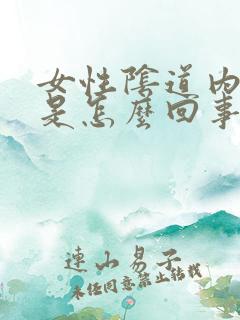 女性陰道內
是怎麼回事
連山易子
未經同意禁止轉載